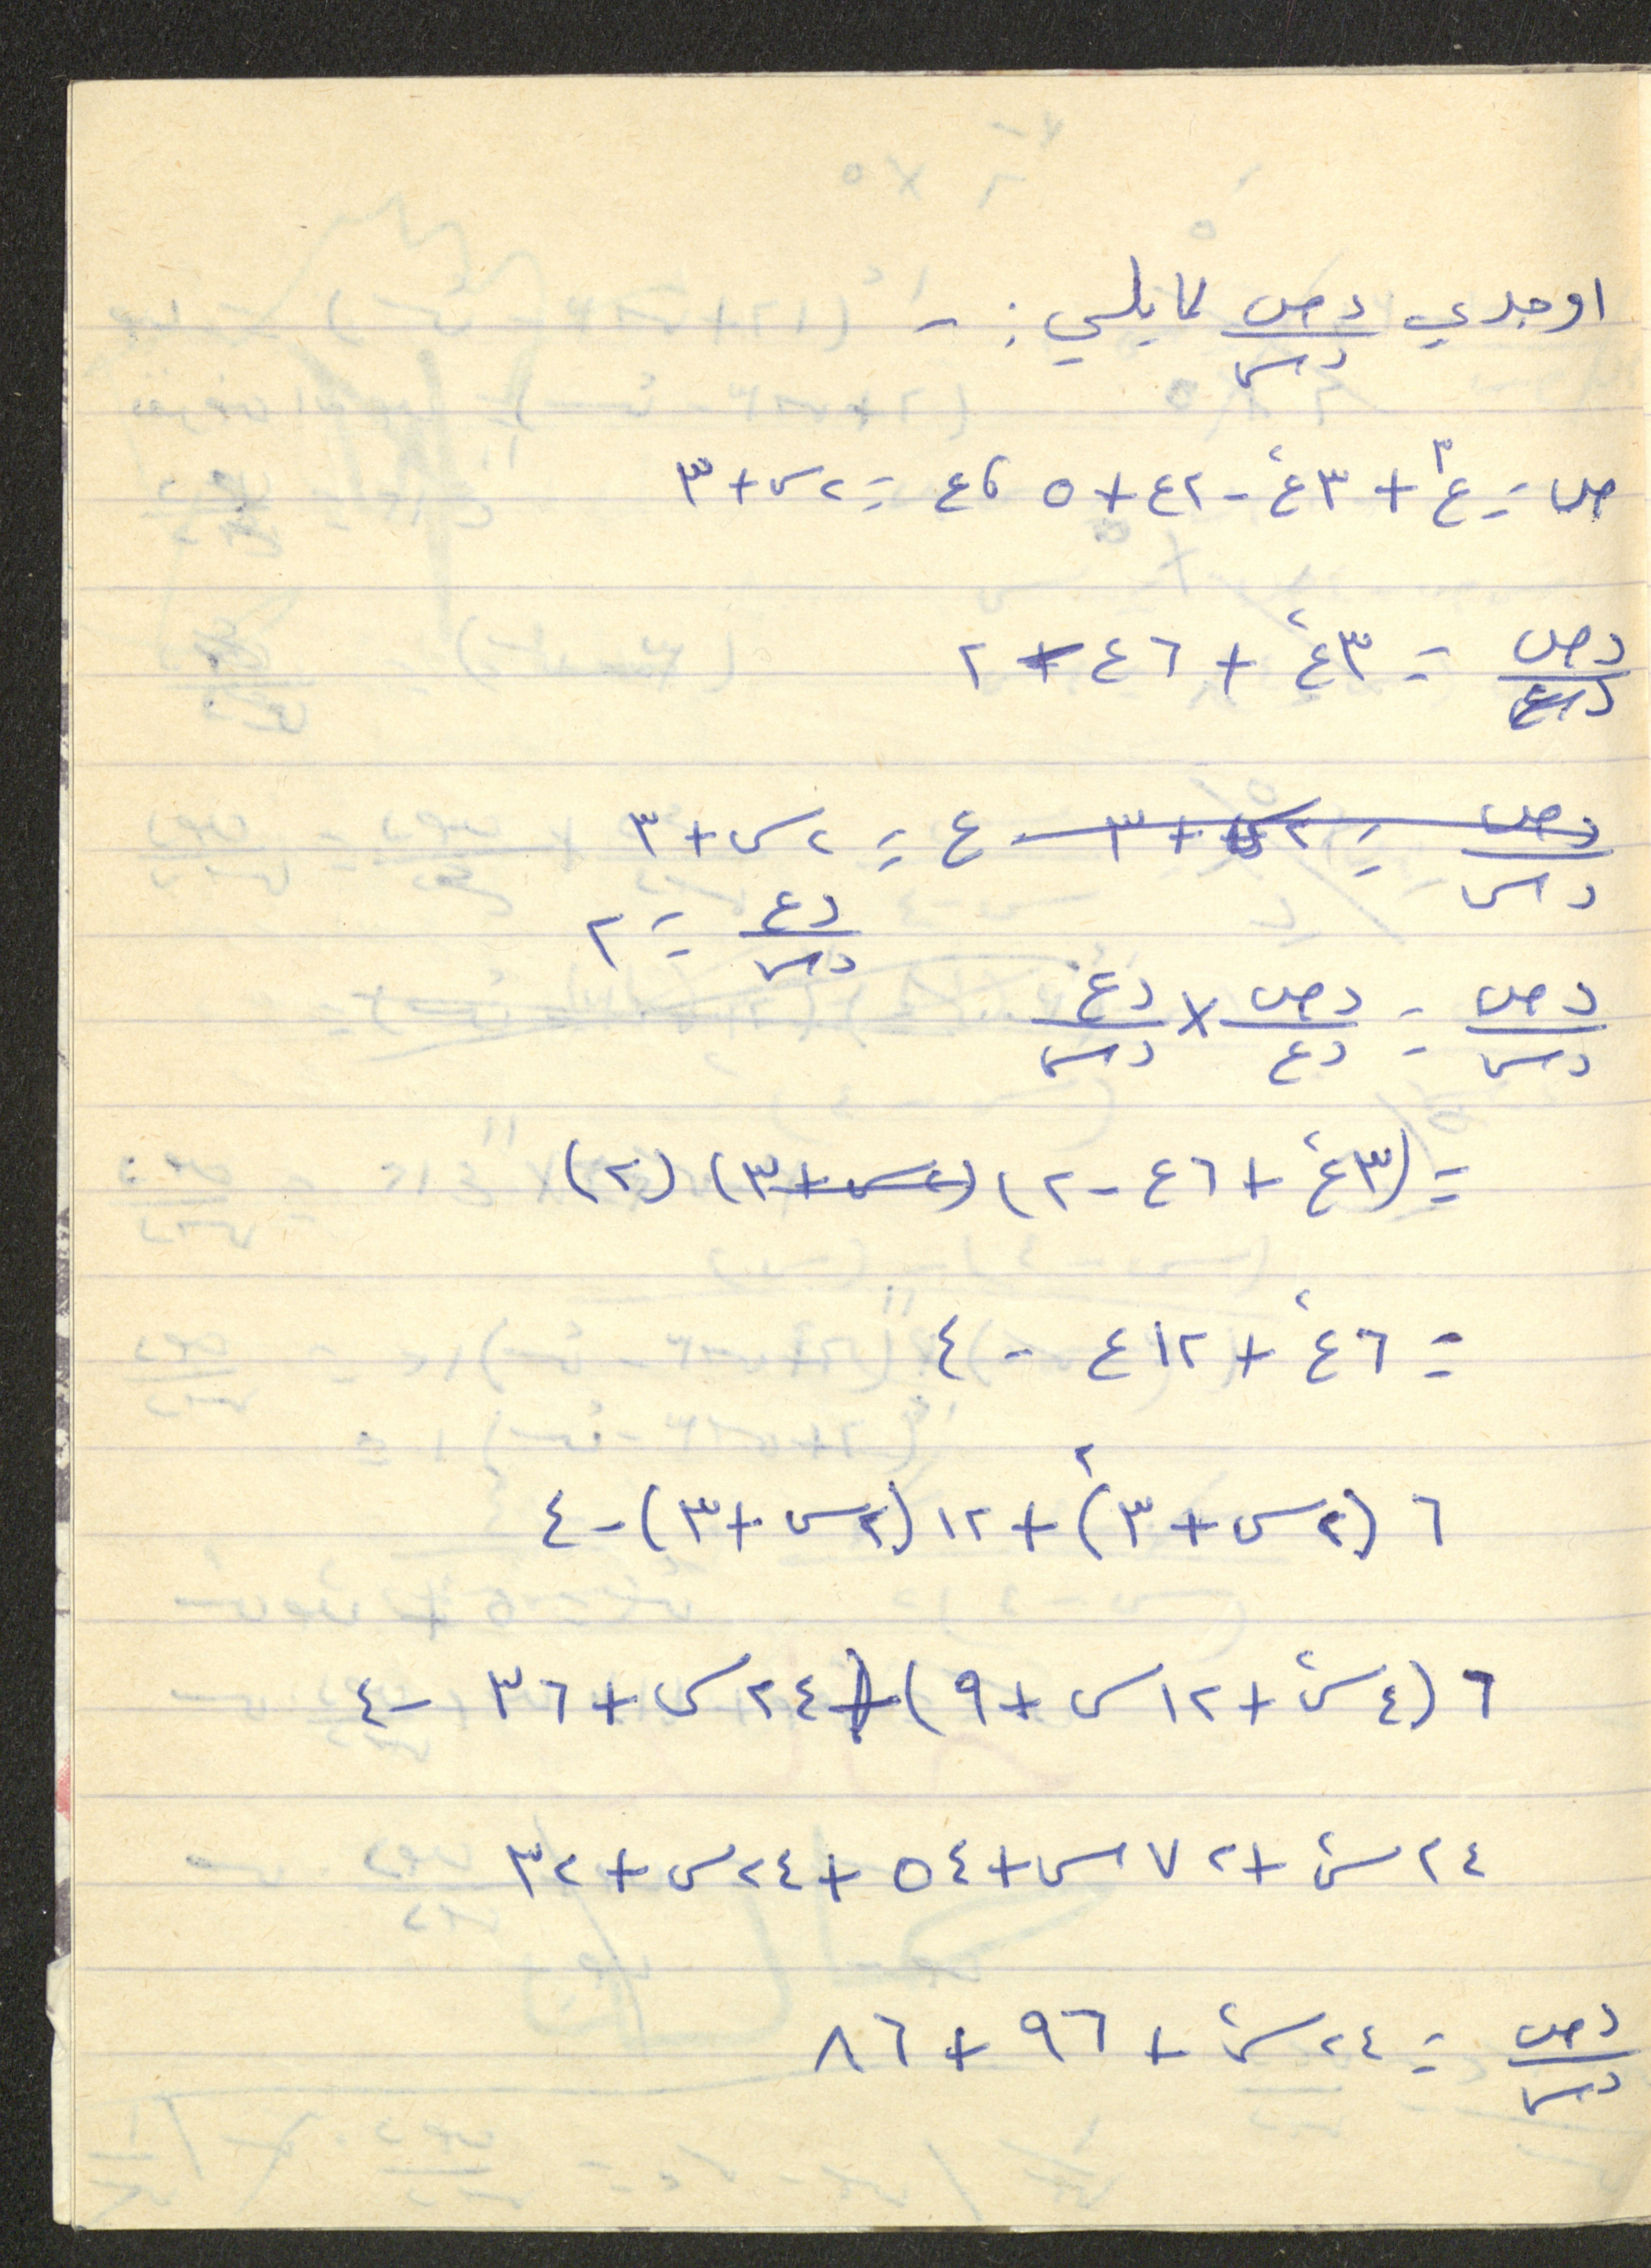 اوجدي دص/دس لما يلي : -
ص = ع³ + ٣ع² - ٢ع + ٥ ، ع = ٢س + ٣
دص/دع = ٣ع² + ٦ع - ٢
دص/دس = ٢س + ٣ ع = ٢س + ٣
دع/دس = ٢
دص/دس = دص/دع × دع/دس
= (٣ع² + ٦ع - ٢) (٢س + ٣) (٢)
= ٦ع² + ١٢ع - ٤
٦ (٢س + ٣)² + ١٢ (٢س + ٣) - ٤
٦ (٤س² + ١٢س + ٩) + ٢٤س + ٣٦ - ٤
٢٤س² + ٧٢س + ٥٤ + ٢٤س + ٣٢
دص/دس = ٢٤س² + ٩٦ + ٨٦